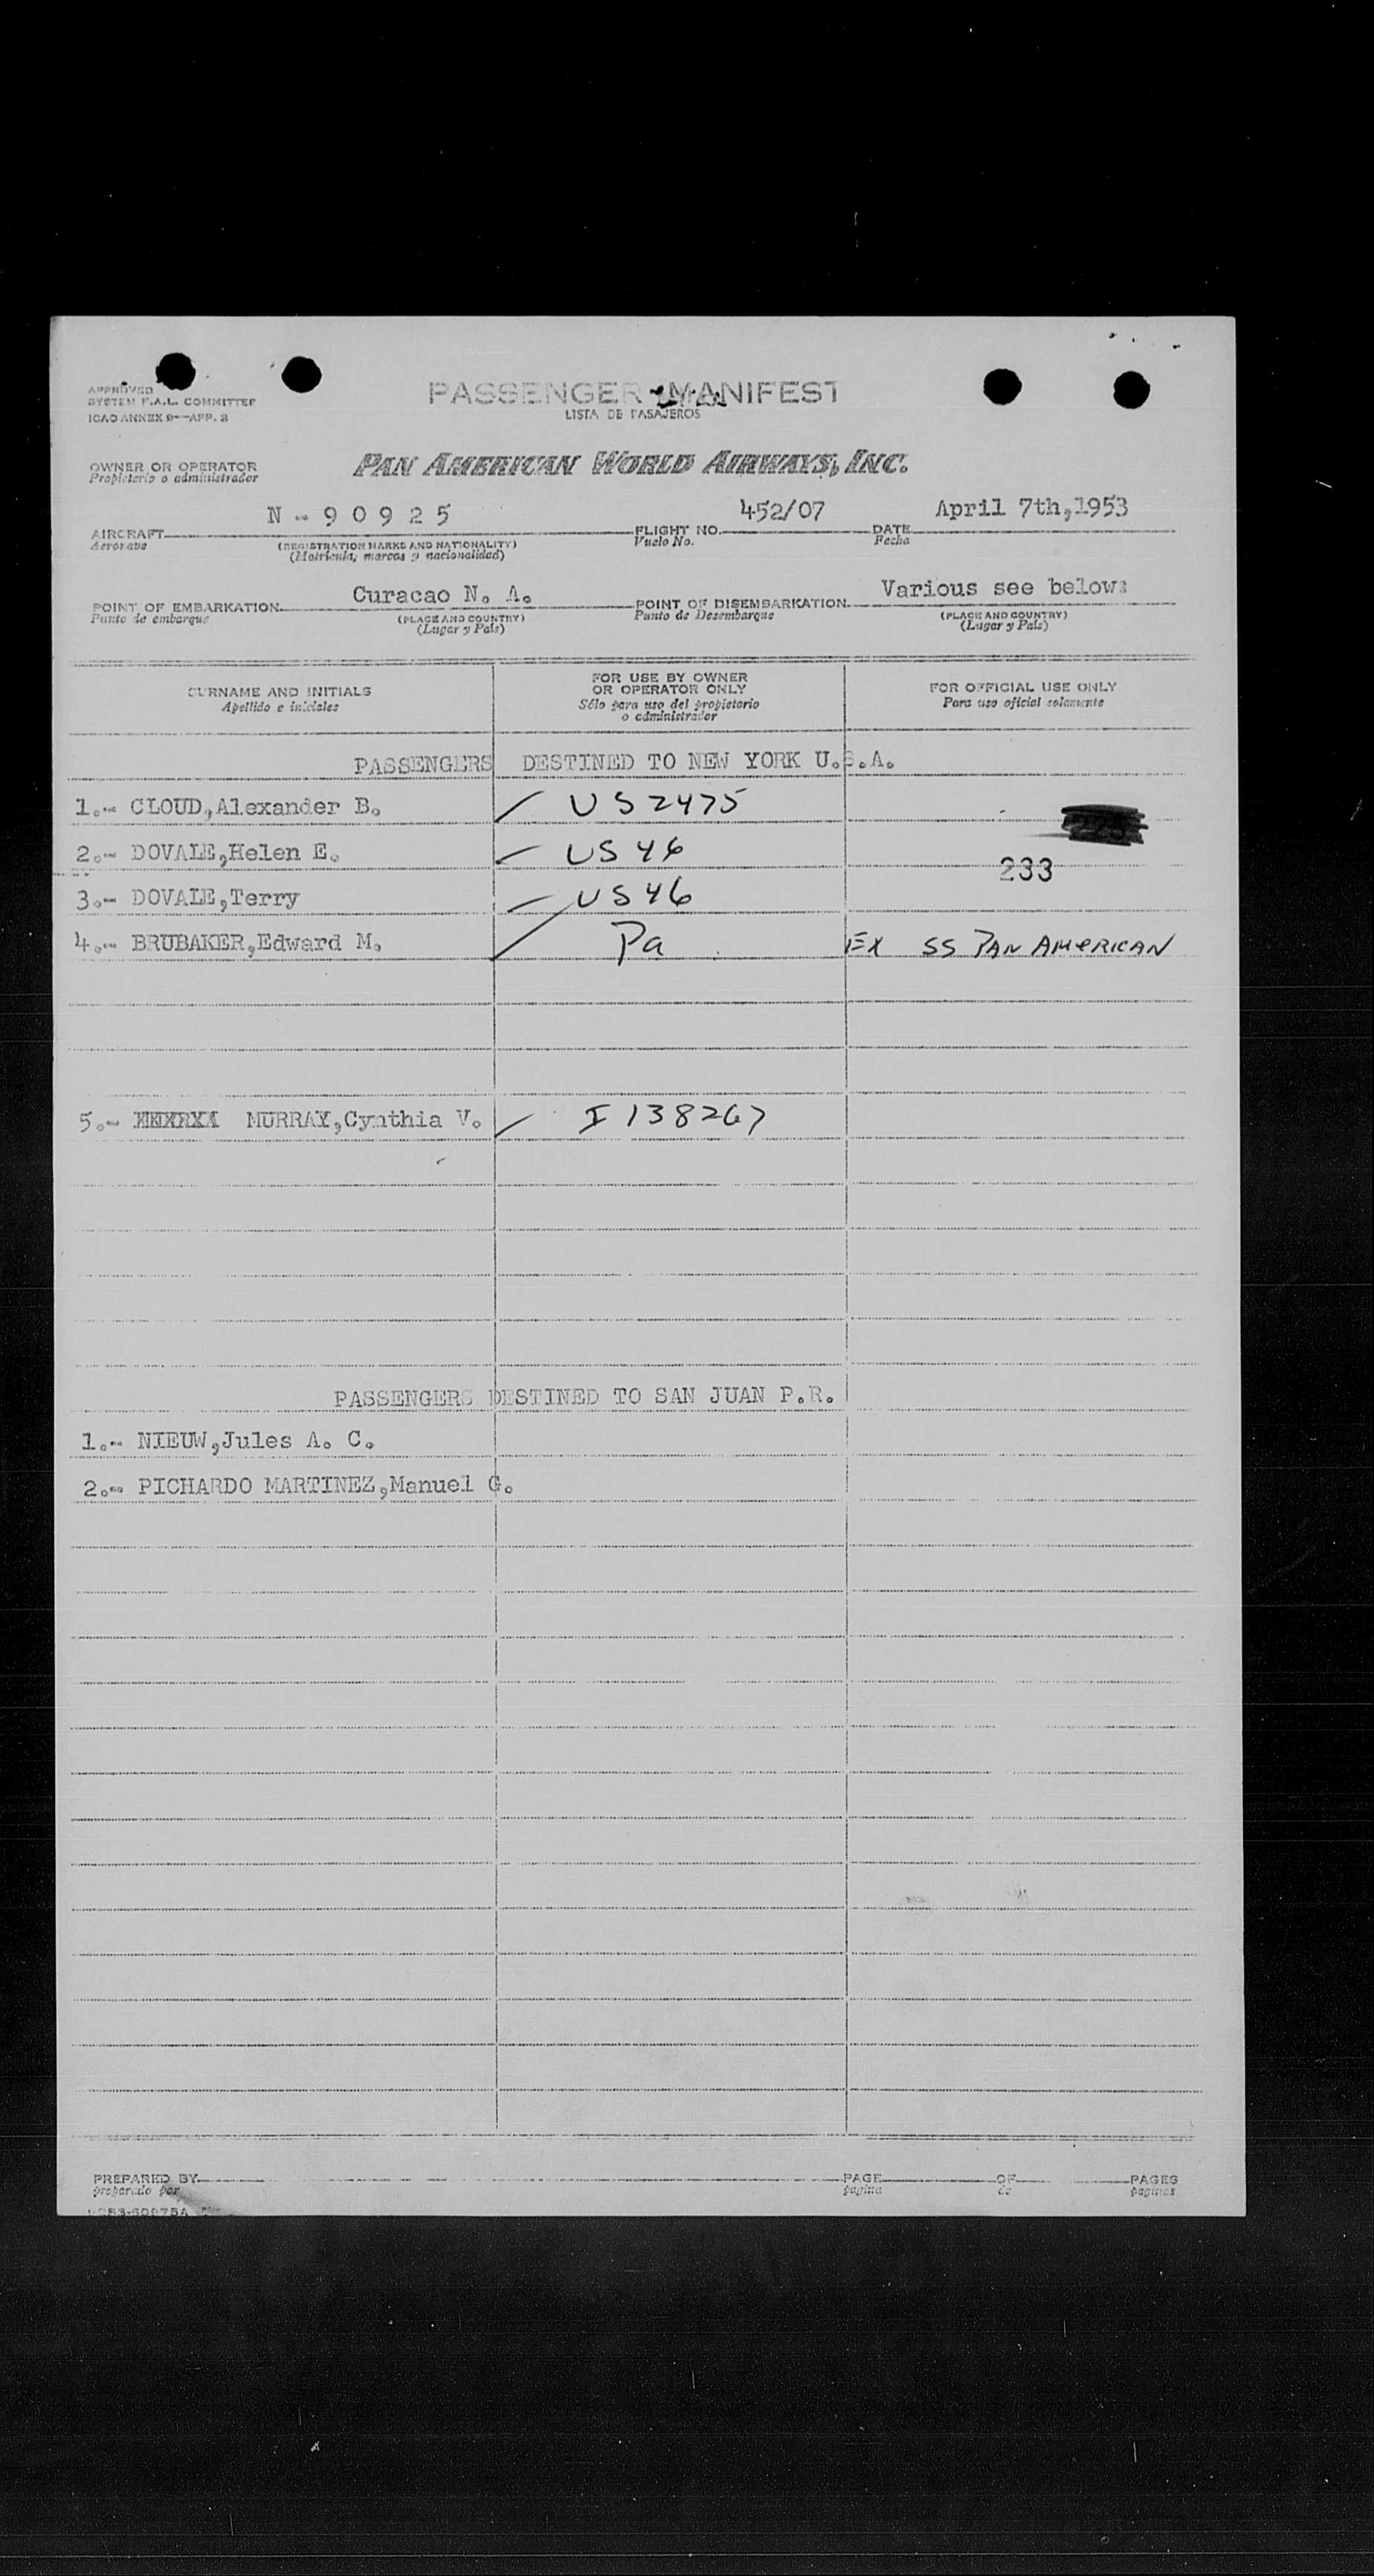 APPROVED
SYSTEM F.A.L. COMMITTEE
ICAO ANNEX 9--APP. 2
PASSENGER MANIFEST
LISTA DE PASAJEROS
OWNER OR OPERATOR
Propietario o administrador
PAN AMERICAN WORLD AIRWAYS, INC.
N - 9 0 9 2 5 452/07 April 7th,1953
AIRCRAFT FLIGHT NO. DATE
Aeronave (REGISTRATION MARKS AND NATIONALITY) Vuelo No. Fecha
(Matricula, marcas y nacionalidad)
Curacao N. A. Various see below:
POINT OF EMBARKATION POINT OF DISEMBARKATION
Punto de embarque (PLACE AND COUNTRY) Punto de Desembarque (PLACE AND COUNTRY)
(Lugar y País) (Lugar y País)
SURNAME AND INITIALS
Apellido e iniciales
FOR USE BY OWNER
OR OPERATOR ONLY
Sólo para uso del propietario
o administrador
FOR OFFICIAL USE ONLY
Para uso oficial solamente
PASSENGERS DESTINED TO NEW YORK U.S.A.
1.- CLOUD,Alexander B. US2475
2.- DOVALE,Helen E. US46
233
3.- DOVALE,Terry US46
4.- BRUBAKER,Edward M. Pa Ex SS PAN AMERICAN
5.- MURRAY,Cynthia V. I 138267
PASSENGERS DESTINED TO SAN JUAN P.R.
1.- NIEUW,Jules A. C.
2.- PICHARDO MARTINEZ,Manuel G.
PREPARED BY PAGE OF PAGES
preparado por pagina de paginas